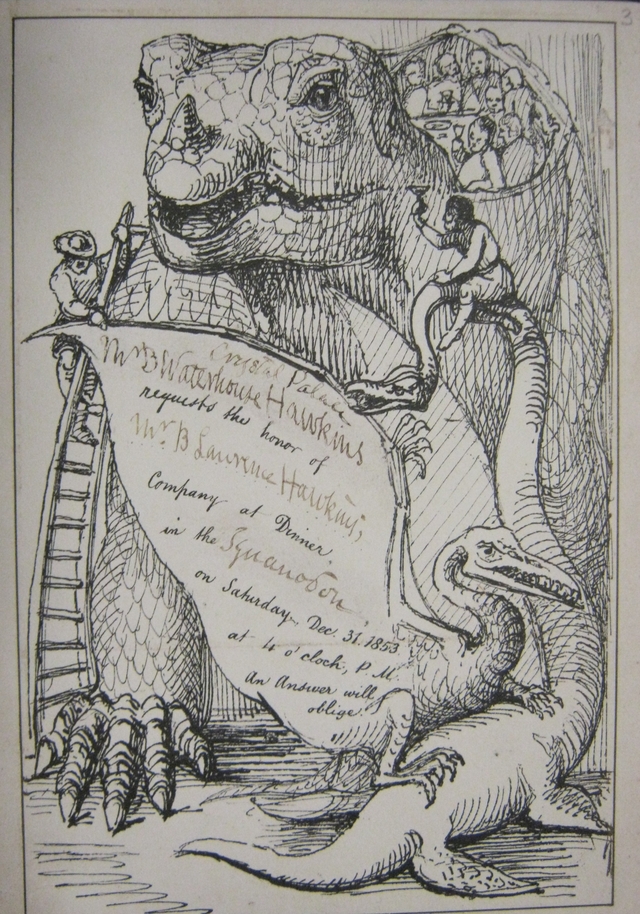 3
Crystal Palace
Mr B Waterhouse Hawkins
requests the honor of
Mr B Laurence Hawkins,
Company at Dinner
in the Iguanodon
on Saturday, Dec. 31. 1853
at 4 o'clock, P.M.
An Answer will
oblige